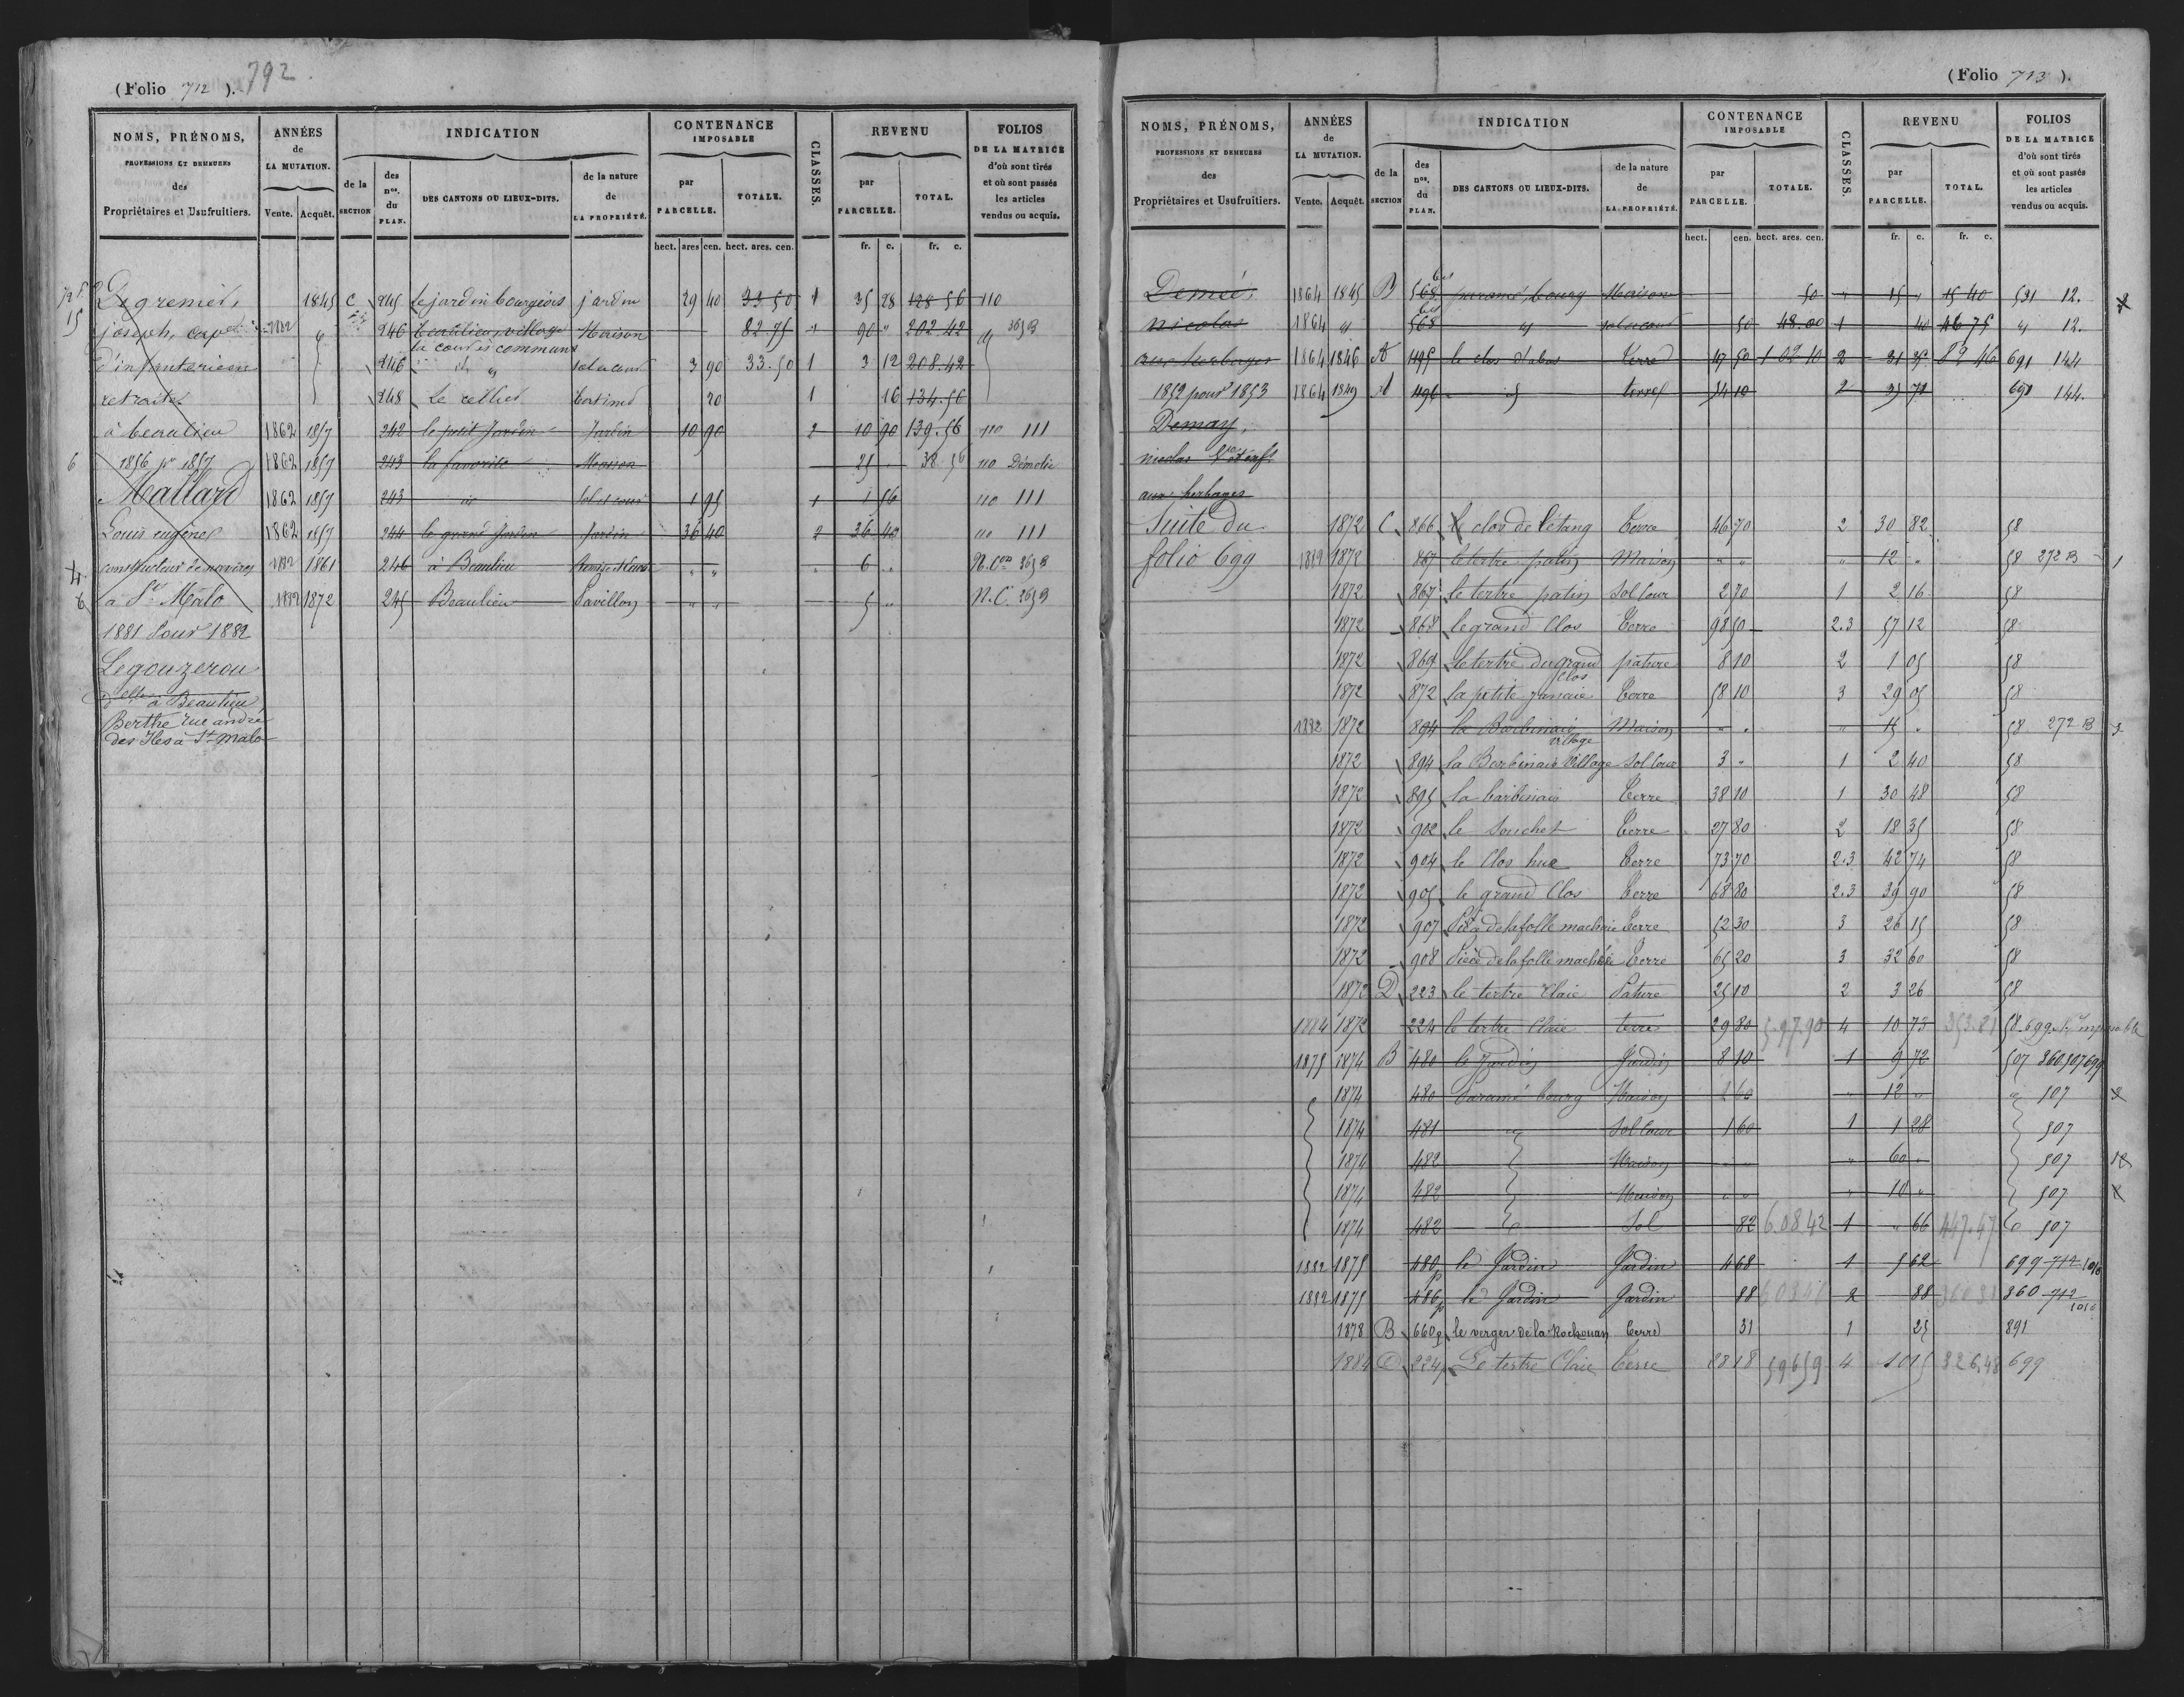 (Folio 712). 792.
NOMS, PRÉNOMS, PROFESSIONS ET DEMEURES des Propriétaires et Usufruitiers.
ANNÉES de LA MUTATION. Vente. Acquêt.
INDICATION
de la SECTION
des nos. du PLAN.
DES CANTONS OU LIEUX-DITS.
de la nature de LA PROPRIÉTÉ.
CONTENANCE IMPOSABLE
par PARCELLE. TOTALE.
hect. ares cen. hect. ares. cen.
CLASSES.
REVENU
par PARCELLE. TOTAL.
fr. c. fr. c.
FOLIOS DE LA MATRICE d'où sont tirés et où sont passés les articles vendus ou acquis.
1845 C 245 le jardin bourgeois jardin 29 40 33.50 1 35 28 128 56 110
joseph, cap 1882 " 246 Beaulieu village Maison 82.75 " 90 " 202 42 365 B
la cour est commune
d'infanterie en 246 d° sol et cour 3 90 33.50 1 3 12 208.42
retraite 248 Le cellier 20 1 16 134.56
à beaulieu 1862 1857 242 le petit Jardin Jardin 10 90 2 10 90 139.56 110 111
6 1856 pr 1857 1862 1857 243 la favorite Maison 25 " 38 56 110 Démolie
Mallard 1862 1857 243 id sol et cour 1 95 1 1 56 110 111
Louis eugène 1862 1857 244 le grand Jardin Jardin 36 40 2 36 40 110 111
constructeur de navires 1882 1861 246 à Beaulieu " " " 6 " N.Con 365 B
à St Mâlo 1882 1872 245 Beaulieu Pavillon " " 5 " N.C. 365 B
1881 Pour 1882
Legouzerou
delle à Beaulieu
Berthe rue andré
des Iles à St Malo
(Folio 713).
NOMS, PRÉNOMS, PROFESSIONS ET DEMEURES des Propriétaires et Usufruitiers.
ANNÉES de LA MUTATION. Vente. Acquêt.
INDICATION
de la SECTION
des nos. du PLAN.
DES CANTONS OU LIEUX-DITS.
de la nature de LA PROPRIÉTÉ.
CONTENANCE IMPOSABLE
par PARCELLE. TOTALE.
hect. cen. hect. ares. cen.
CLASSES.
REVENU
par PARCELLE. TOTAL.
fr. c. fr. c.
FOLIOS DE LA MATRICE d'où sont tirés et où sont passés les articles vendus ou acquis.
1864 1845 B 568 bis paramé, bourg Maison 50 " 15 " 15 40 591 12.
nicolas 1864 " 568 bis " sol et cour 50 48.00 1 40 46 75 " 12.
aux herbages 1864 1846 A 1195 le clos Terre 47 50 1 02 10 2 31 35 82 46 691 144
1852 pour 1853 1864 1849 A 1196 terre 54 10 2 35 71 691 144.
Demay,
nicolas
aux herbages
Suite du 1872 C 866 le clos de l'étang Terre 46 70 2 30 82 58
folio 699 1882 1872 867 le tertre patin Maison " " " 12 " 58 272 B 1
1872 867 le tertre patin Sol Cour 2 70 1 2 16 58
1872 868 le grand Clos Terre 98 50 2.3 57 12 58
1872 869 le tertre du grand Clos pâture 8 10 2 1 05 58
1872 872 la petite janaie Terre 58 10 3 29 05 58
1882 1872 894 la Barbinais village Maison " " " 15 " 58 272 B
1872 894 la Barbinais Village Sol Cour 3 " 1 2 40 58
1872 895 la barbinais Terre 38 10 1 30 48 58
1872 902 le Souchet Terre 27 80 2 18 35 58
1872 904 le Clos hue Terre 73 70 2.3 42 74 58
1872 905 le grand Clos Terre 68 80 2.3 39 90 58
1872 907 de la folle Terre 52 30 3 26 15 58
1872 908 Pièce de la folle Terre 65 20 3 32 60 58
1872 D 223 le tertre Claie Pature 25 10 2 3 26 58
1884 1872 224 le tertre Claie terre 29 80 5.97.90 4 10 73 353.81 58.699
1875 1874 B 480 le Jardin Jardin 8 10 1 9 72 507 360.507 699
1874 480 Paramé bourg Maison 1 60 " 12 " " 507
1874 481 Sol Cour 1 60 1 1 28 507
1874 482 Maison " " " 60 " 507
1874 482 Maison " " " 10 " 507
1874 482 Sol 82 6.08 42 1 " 66 447.47 507
1882 1875 480p le Jardin Jardin 4 68 1 5 62 699 712 1016
1882 1875 486p le Jardin Jardin 88 2 88 360 712 1016
1878 B 660p le verger de la Rochouan Terre 31 1 25 891
1884 D 224p Le tertre Claie Terre 28 18 5 96 59 4 10 15 326,48 699